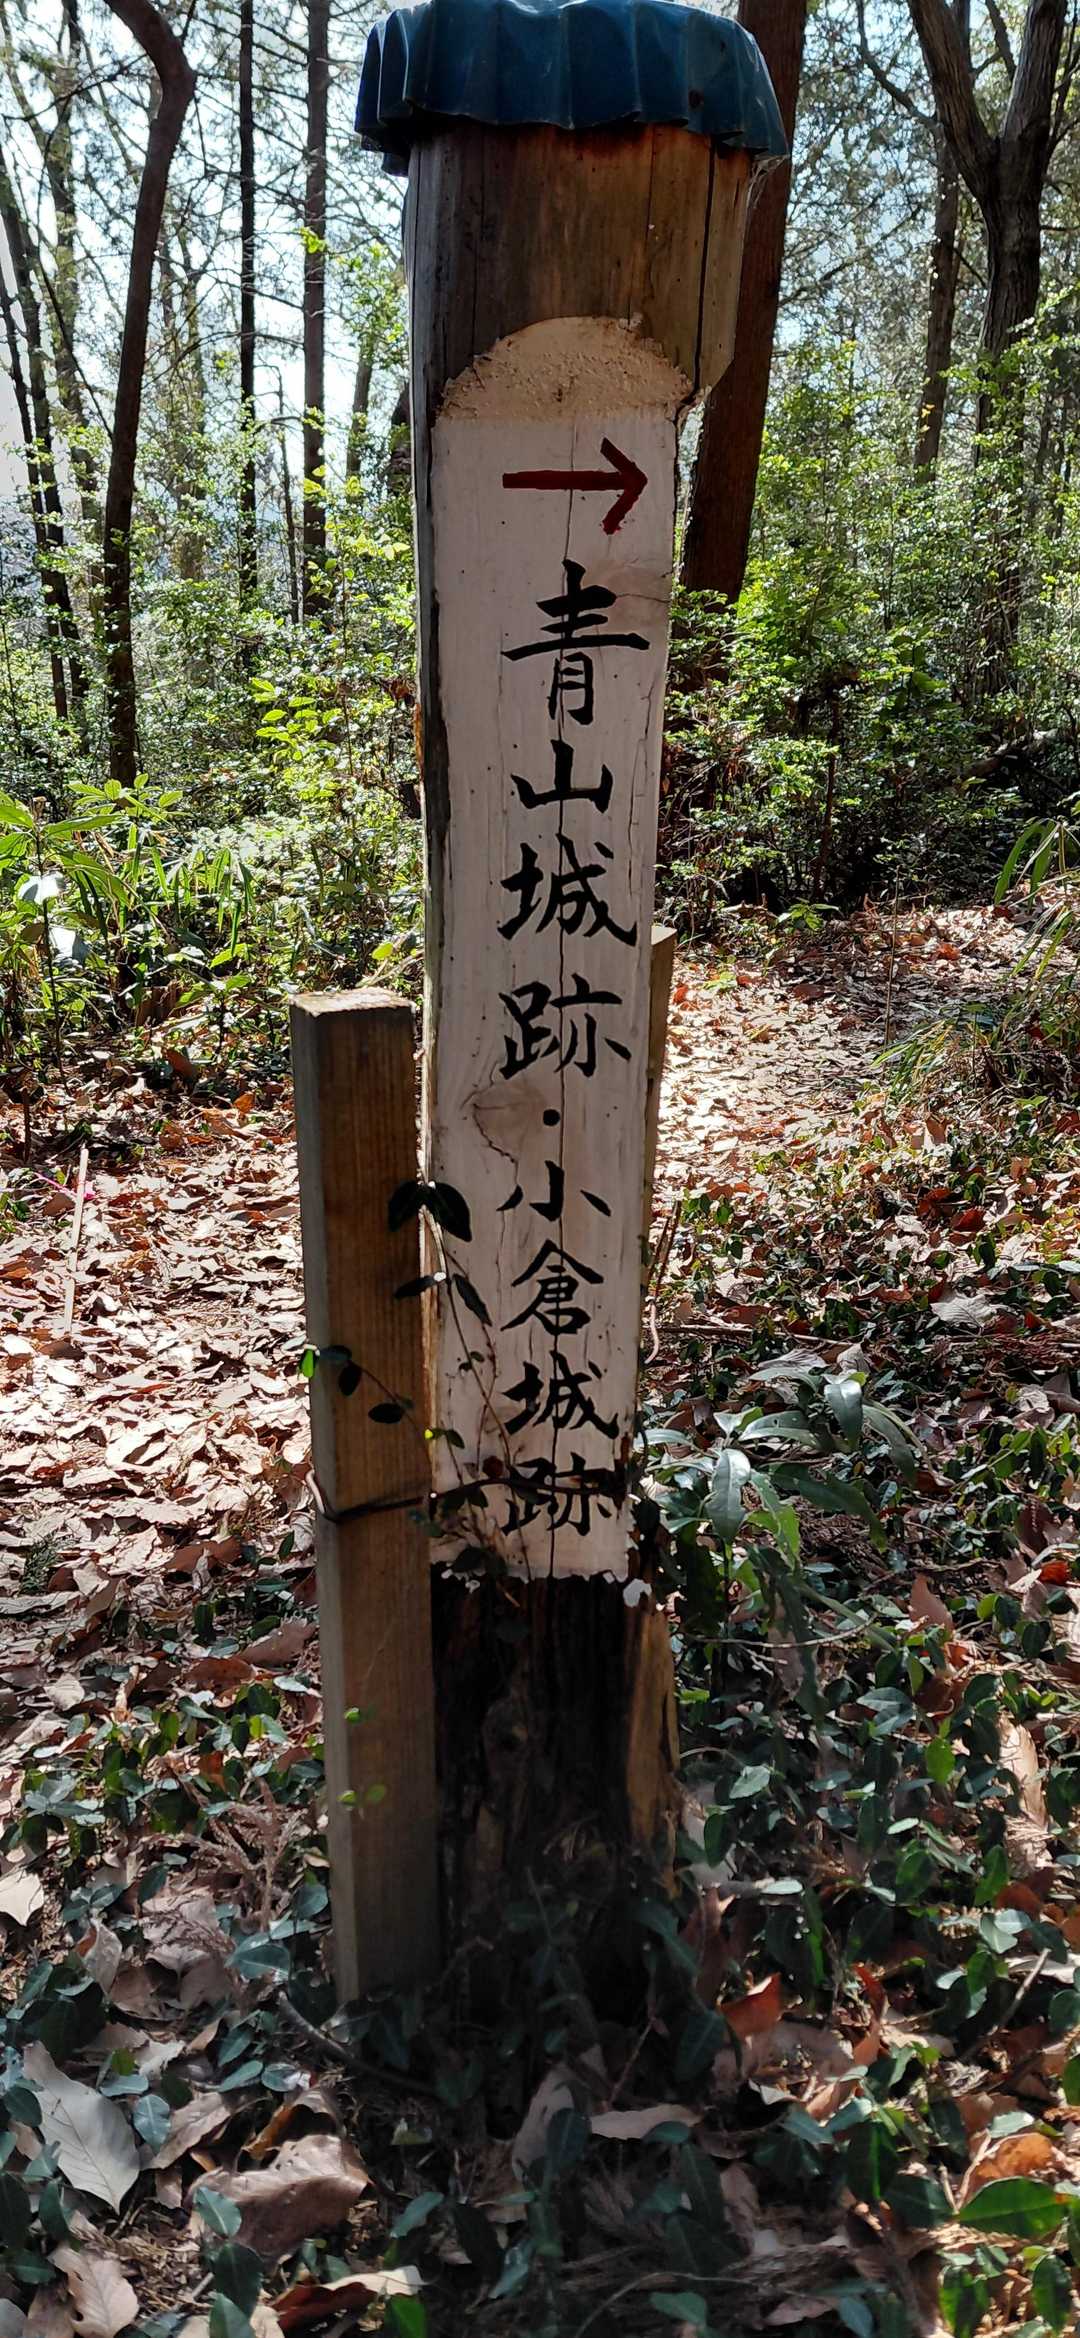 →
青山城跡・小倉城跡